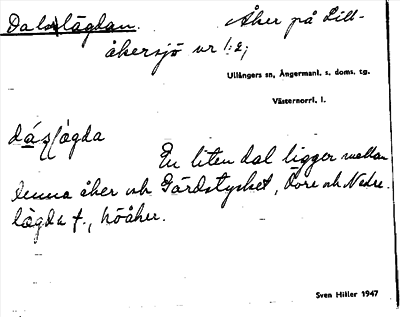 Dalslägdan. Åker på Lill-
åkersjö nr 1:2;
Ullångers sn, Ångermanl. s. doms. tg.
Västernorrl. l.
lägda
En liten dal ligger mellan
denna åker och Gärdstycket, Övre och Nedre
lägda f., höåker.
Sven Hitler 1947